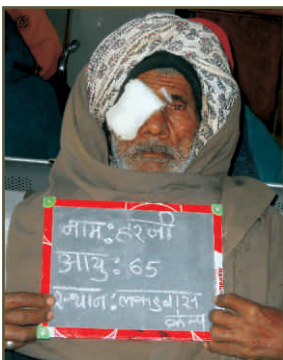 नाम: हरजी
आयु: 65
स्थान: लकडवास